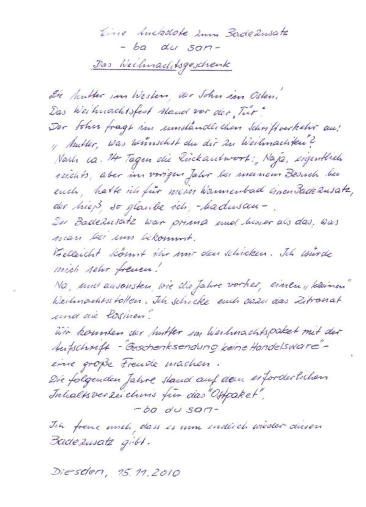 Eine Anekdote zum Badezusatz
- ba du san -
Das Weihnachtsgeschenk
Die Mutter im Westen, der Sohn im Osten!
Das Weihnachtsfest stand vor der "Tür".
Der Sohn fragt im umständlichen Schriftverkehr an:
"Mutter, was wünschst du dir zu Weihnachten"?
Nach ca. 14 Tagen die Rückantwort: "Naja, eigentlich
nichts, aber im vorigen Jahr bei meinem Besuch bei
euch, hatte ich für mein Wannenbad einen Badezusatz,
der hieß, so glaube ich, -badusan-.
Der Badezusatz war prima und besser als das, was
man bei uns bekommt.
Vielleicht könnt ihr mir den schicken. Ich würde
mich sehr freuen!
Na, und ansonsten wie die Jahre vorher, einen "kleinen"
Weihnachtsstollen. Ich schicke euch dazu das Zitronat
und die Rosinen".
Wir konnten der Mutter im Weihnachtspaket mit der
Aufschrift - Geschenksendung keine Handelsware -
eine große Freude machen.
Die folgenden Jahre stand auf dem erforderlichen
Inhaltsverzeichnis für das "Ostpaket",
- ba du san -
Ich freue mich, dass es nun endlich wieder diesen
Badezusatz gibt.
Dresden, 15.11.2010